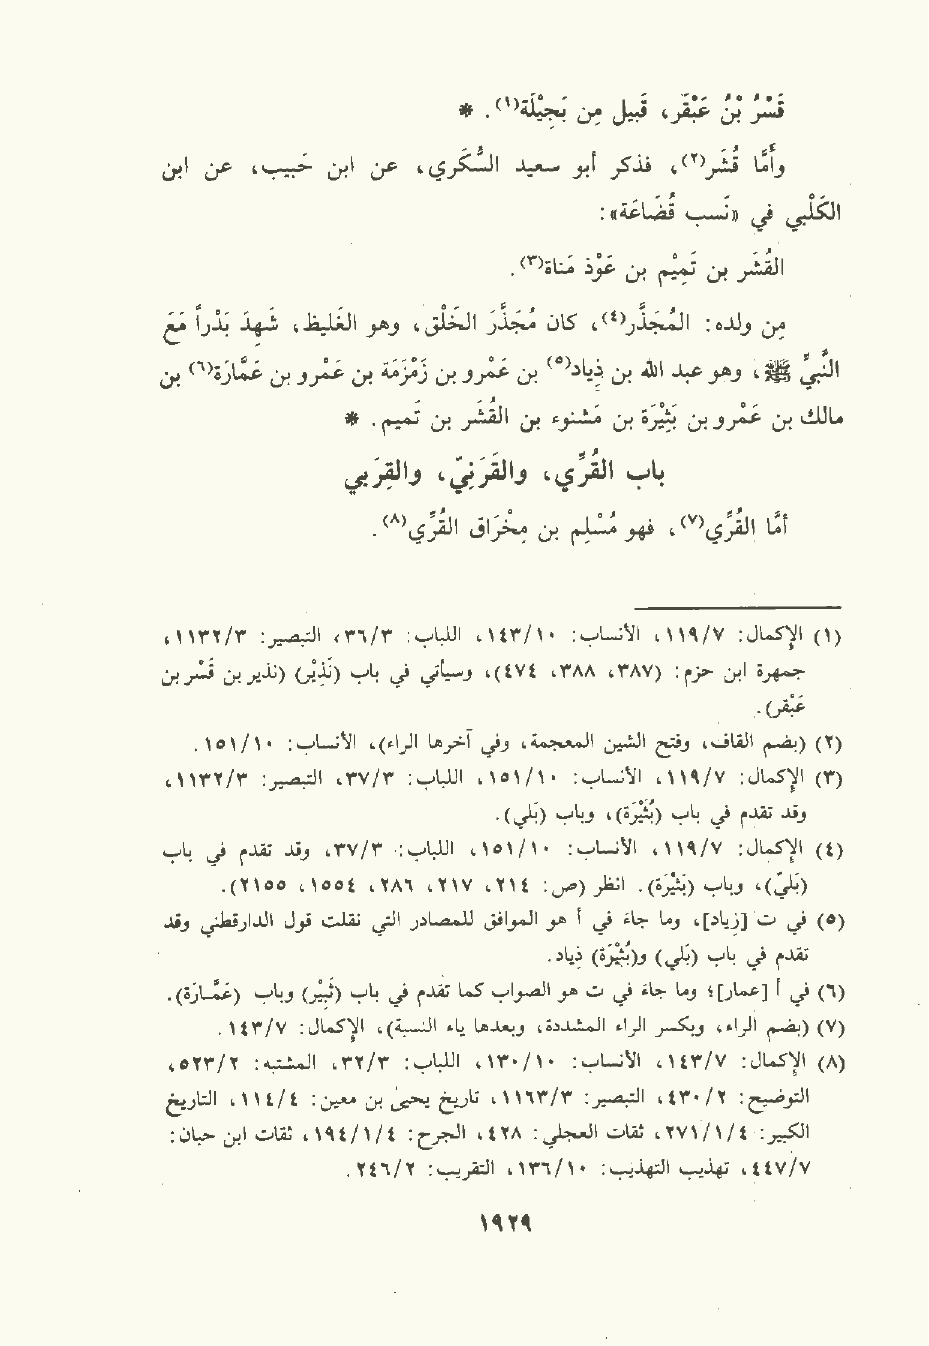 قَسْرُ بْنُ عَبْقَر، قَبيل مِن بَجِيْلَة(١). *
وأمَّا قُشَر(٢)، فذكر أبو سعيد السُّكَري، عن ابن خَبيب، عن ابن
الكَلْبي في «نَسب قُضَاعَة»:
القُشَر بن تَمِيْم بن عَوْذ مَناة(٣).
مِن ولده: المُجَذَّر(٤)، كان مُجَذَّرَ الخَلْق، وهو الغَليظ، شَهِدَ بَدْراً مَعَ
النَّبيِّ ﷺ، وهو عبد الله بن ذِياد(٥) بن عَمْرو بن زَمْزَمَة بن عَمْرو بن عَمَّارَة(٦) بن
مالك بن عَمْرو بن بَثِيْرَة بن مَشنوء بن القُشَر بن تَميم. *
باب القُرِّي، والقَرَنِيّ، والقِرَبي
أمَّا القُرِّي(٧)، فهو مُسْلِم بن مِخْرَاق القُرِّي(٨).
(١) الإكمال: ١١٩/٧، الأنساب: ١٤٣/١٠، اللباب: ٣٦/٣، التبصير: ١١٣٢/٣،
جمهرة ابن حزم: (٣٨٧، ٣٨٨، ٤٧٤)، وسيأتي في باب (نَذِيْر) (نذير بن قَسْر بن
عَبْقر).
(٢) (بضم القاف، وفتح الشين المعجمة، وفي آخرها الراء)، الأنساب: ١٥١/١٠.
(٣) الإكمال: ١١٩/٧، الأنساب: ١٥١/١٠، اللباب: ٣٧/٣، التبصير: ١١٣٢/٣،
وقد تقدم في باب (بُثَيْرَة)، وباب (بَلي).
(٤) الإكمال: ١١٩/٧، الأنساب: ١٥١/١٠، اللباب: ٣٧/٣، وقد تقدم في باب
(بَلِيّ)، وباب (بَثِيْرَة). انظر (ص: ٢١٤، ٢١٧، ٢٨٦، ١٥٥٤، ٢١٥٥).
(٥) في ت [زِياد]، وما جاء في أ هو الموافق للمصادر التي نقلت قول الدارقطني وقد
تقدم في باب (بَلي) و(بُثَيْرَة) ذِياد.
(٦) في أ [عمار]؛ وما جاء في ت هو الصواب كما تقدم في باب (بَثِيْر) وباب (عَمَّارَة).
(٧) (بضم الراء، وبكسر الراء المشددة، وبعدها ياء النسبة)، الإكمال: ١٤٣/٧.
(٨) الإكمال: ١٤٣/٧، الأنساب: ١٣٠/١٠، اللباب: ٣٢/٣، المشتبه: ٥٢٣/٢،
التوضيح: ٤٣٠/٢، التبصير: ١١٦٣/٣، تاريخ يحيىٰ بن معين: ١١٤/٤، التاريخ
الكبير: ٢٧١/١/٤، ثقات العجلي: ٤٢٨، الجرح: ١٩٤/١/٤، ثقات ابن حبان:
٤٤٧/٧، تهذيب التهذيب: ١٣٦/١٠، التقريب: ٢٤٦/٢.
١٩٢٩